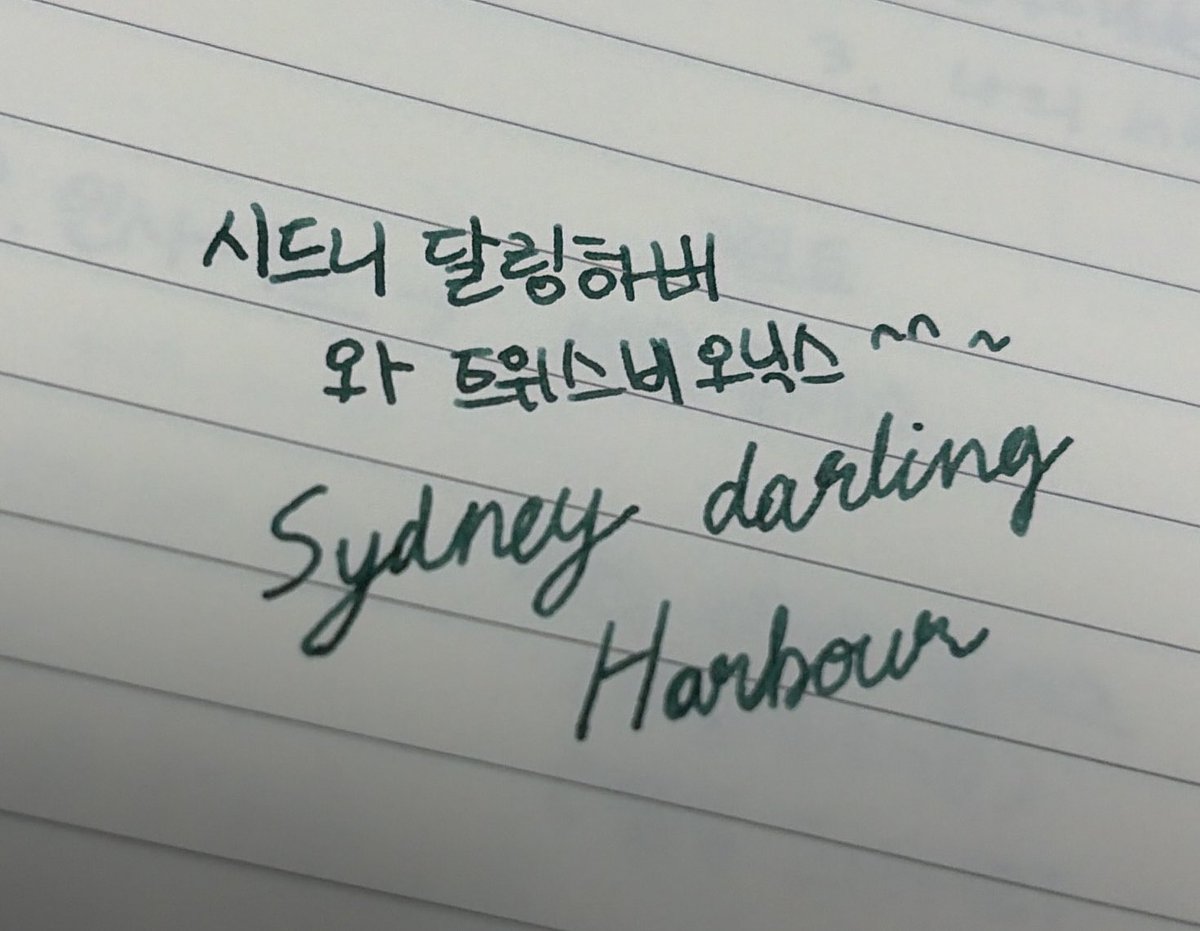 시드니 달링하버
와 트위스비 오닉스 ^^ ~
Sydney darling
Harbour